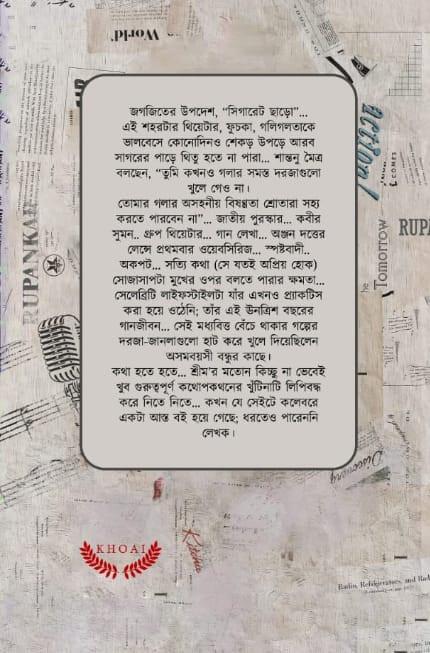 World'
জগজিতের উপদেশ, “সিগারেট ছাড়ো”...
এই শহরটার থিয়েটার, ফুচকা, গলিগলতাকে
ভালবেসে কোনোদিনও শেকড় উপড়ে আরব
সাগরের পাড়ে থিতু হতে না পারা... শান্তনু মৈত্র
বলছেন, “তুমি কখনও গলার সমস্ত দরজাগুলো
খুলে গেও না।
তোমার গলার অসহনীয় বিষণ্ণতা শ্রোতারা সহ্য
করতে পারবেন না”... জাতীয় পুরস্কার... কবীর
সুমন.. গ্রুপ থিয়েটার... গান লেখা... অঞ্জন দত্তের
লেন্সে প্রথমবার ওয়েবসিরিজ... স্পষ্টবাদী..
অকপট... সত্যি কথা (সে যতই অপ্রিয় হোক)
সোজাসাপটা মুখের ওপর বলতে পারার ক্ষমতা...
সেলেব্রিটি লাইফস্টাইলটা যাঁর এখনও প্র্যাকটিস
করা হয়ে ওঠেনি; তাঁর এই ঊনত্রিশ বছরের
গানজীবন... সেই মধ্যবিত্ত বেঁচে থাকার গল্পের
দরজা-জানলাগুলো হাট করে খুলে দিয়েছিলেন
অসমবয়সী বন্ধুর কাছে।
কথা হতে হতে... শ্রীম'র মতোন কিচ্ছু না ভেবেই
খুব গুরুত্বপূর্ণ কথোপকথনের খুঁটিনাটি লিপিবদ্ধ
করে নিতে নিতে... কখন যে সেইটে কলেবরে
একটা আস্ত বই হয়ে গেছে; ধরতেও পারেননি
লেখক।
Action!
COMES
Tomorrow
RUPA
RUPANKA
Discovery
KHOAI
Radio, Refrigerators, and Rad